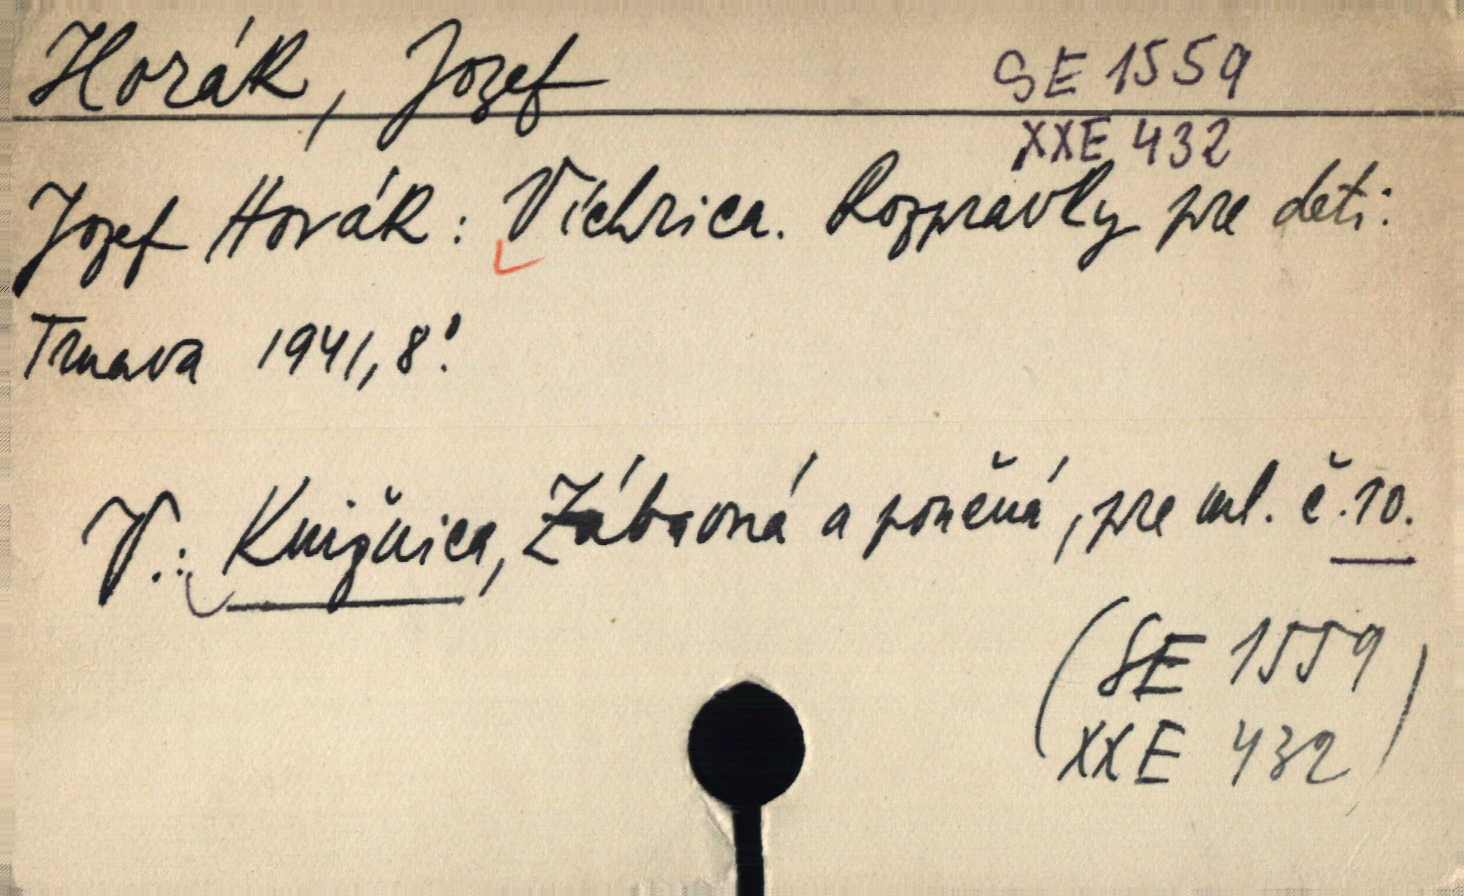 Horák, Jozef
SE 1559
XXE 432
Jozef Horák: Víchrica. Rozprávky pre deti:
Trnava 1941, 8°.
V.: Knižnica, Zábavná a poučná, pre ml. č. 10.
(SE 1559
XXE 432)